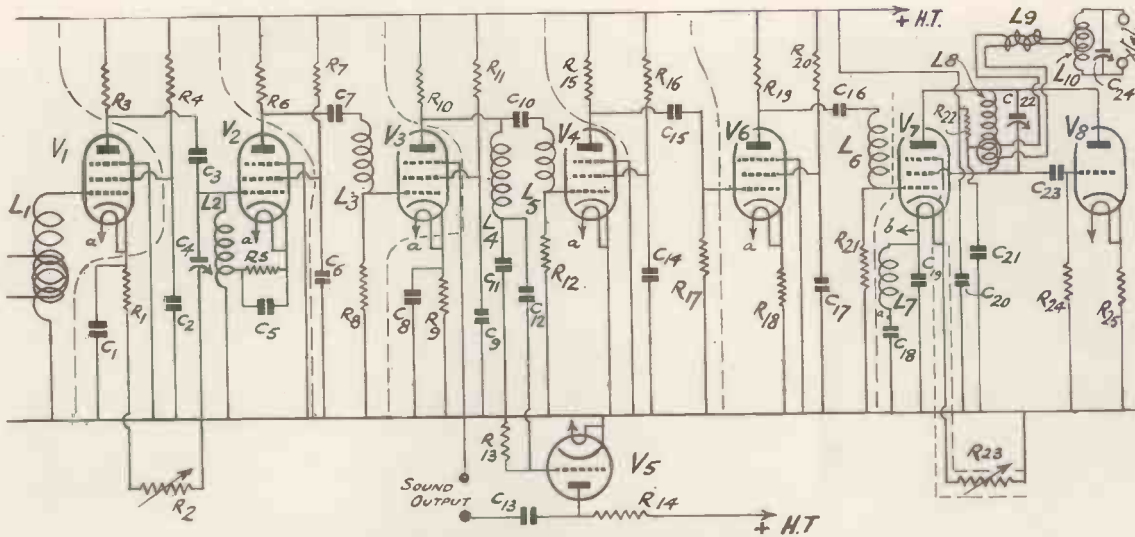 + H.T.
L9
R3
R4
R6
R7
C7
R11
R10
C10
R 15
R16
C15
R19
R20
C16
L8
R22
C 22
L10
C24
V1
V2
V3
V4
V6
V7
V8
C3
L1
L2
L3
L5
L6
C23
a
a
a
a
a
b
C4
R5
C5
C6
R8
C8
R9
C9
L4
C11
C12
R12
C14
R17
R18
C17
R21
C19
L7
a
C18
C20
C21
R24
R25
C1
R1
C2
R2
R 13
V5
R23
SOUND OUTPUT
C13
R14
+ H.T